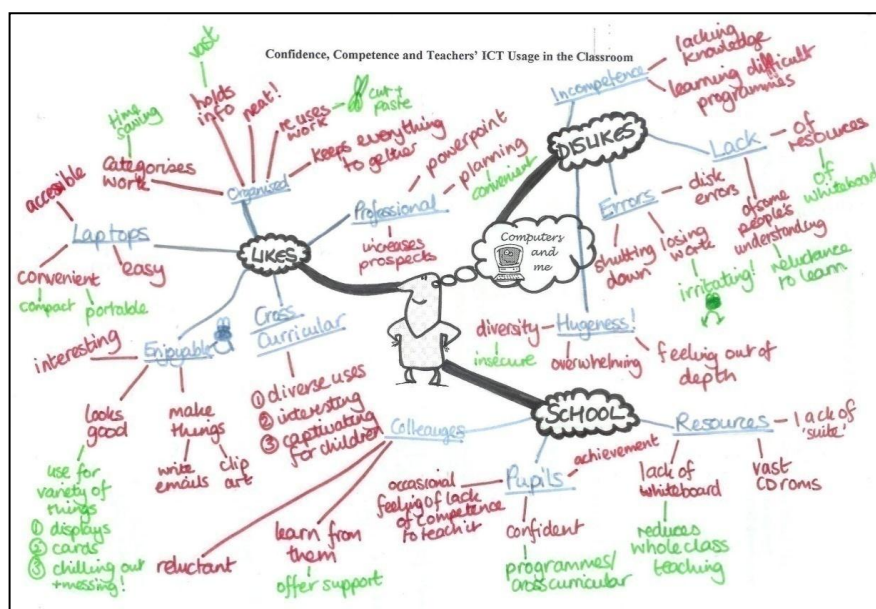 Confidence, Competence and Teachers' ICT Usage in the Classroom
Computers
and me
LIKES
Organised
vast
holds
info
neat!
re uses
work
cut +
paste
keeps everything
together
time
saving
Categorises
work
Professional
powerpoint
planning
increases
prospects
Laptops
accessible
easy
convenient
compact
portable
Enjoyable
interesting
looks
good
use for
variety of
things
① displays
② cards
③ chilling out
+ messing!
make
things
write
emails
clip
art
Cross
Curricular
① diverse uses
② interesting
③ captivating
for children
DISLIKES
convenient
Incompetence
lacking
knowledge
learning difficult
programmes
Lack
of
resources
of
whiteboard
of some
people's
understanding
reluctance
to learn
Errors
disk
errors
shutting
down
losing
work
irritating!
Hugeness!
diversity
insecure
overwhelming
feeling out of
depth
SCHOOL
Colleauges
reluctant
learn from
them
offer support
Pupils
achievement
occasional
feeling of lack
of competence
to teach it
confident
programmes/
cross curricular
Resources
lack of
'suite'
vast
CD roms
lack of
whiteboard
reduces
whole class
teaching